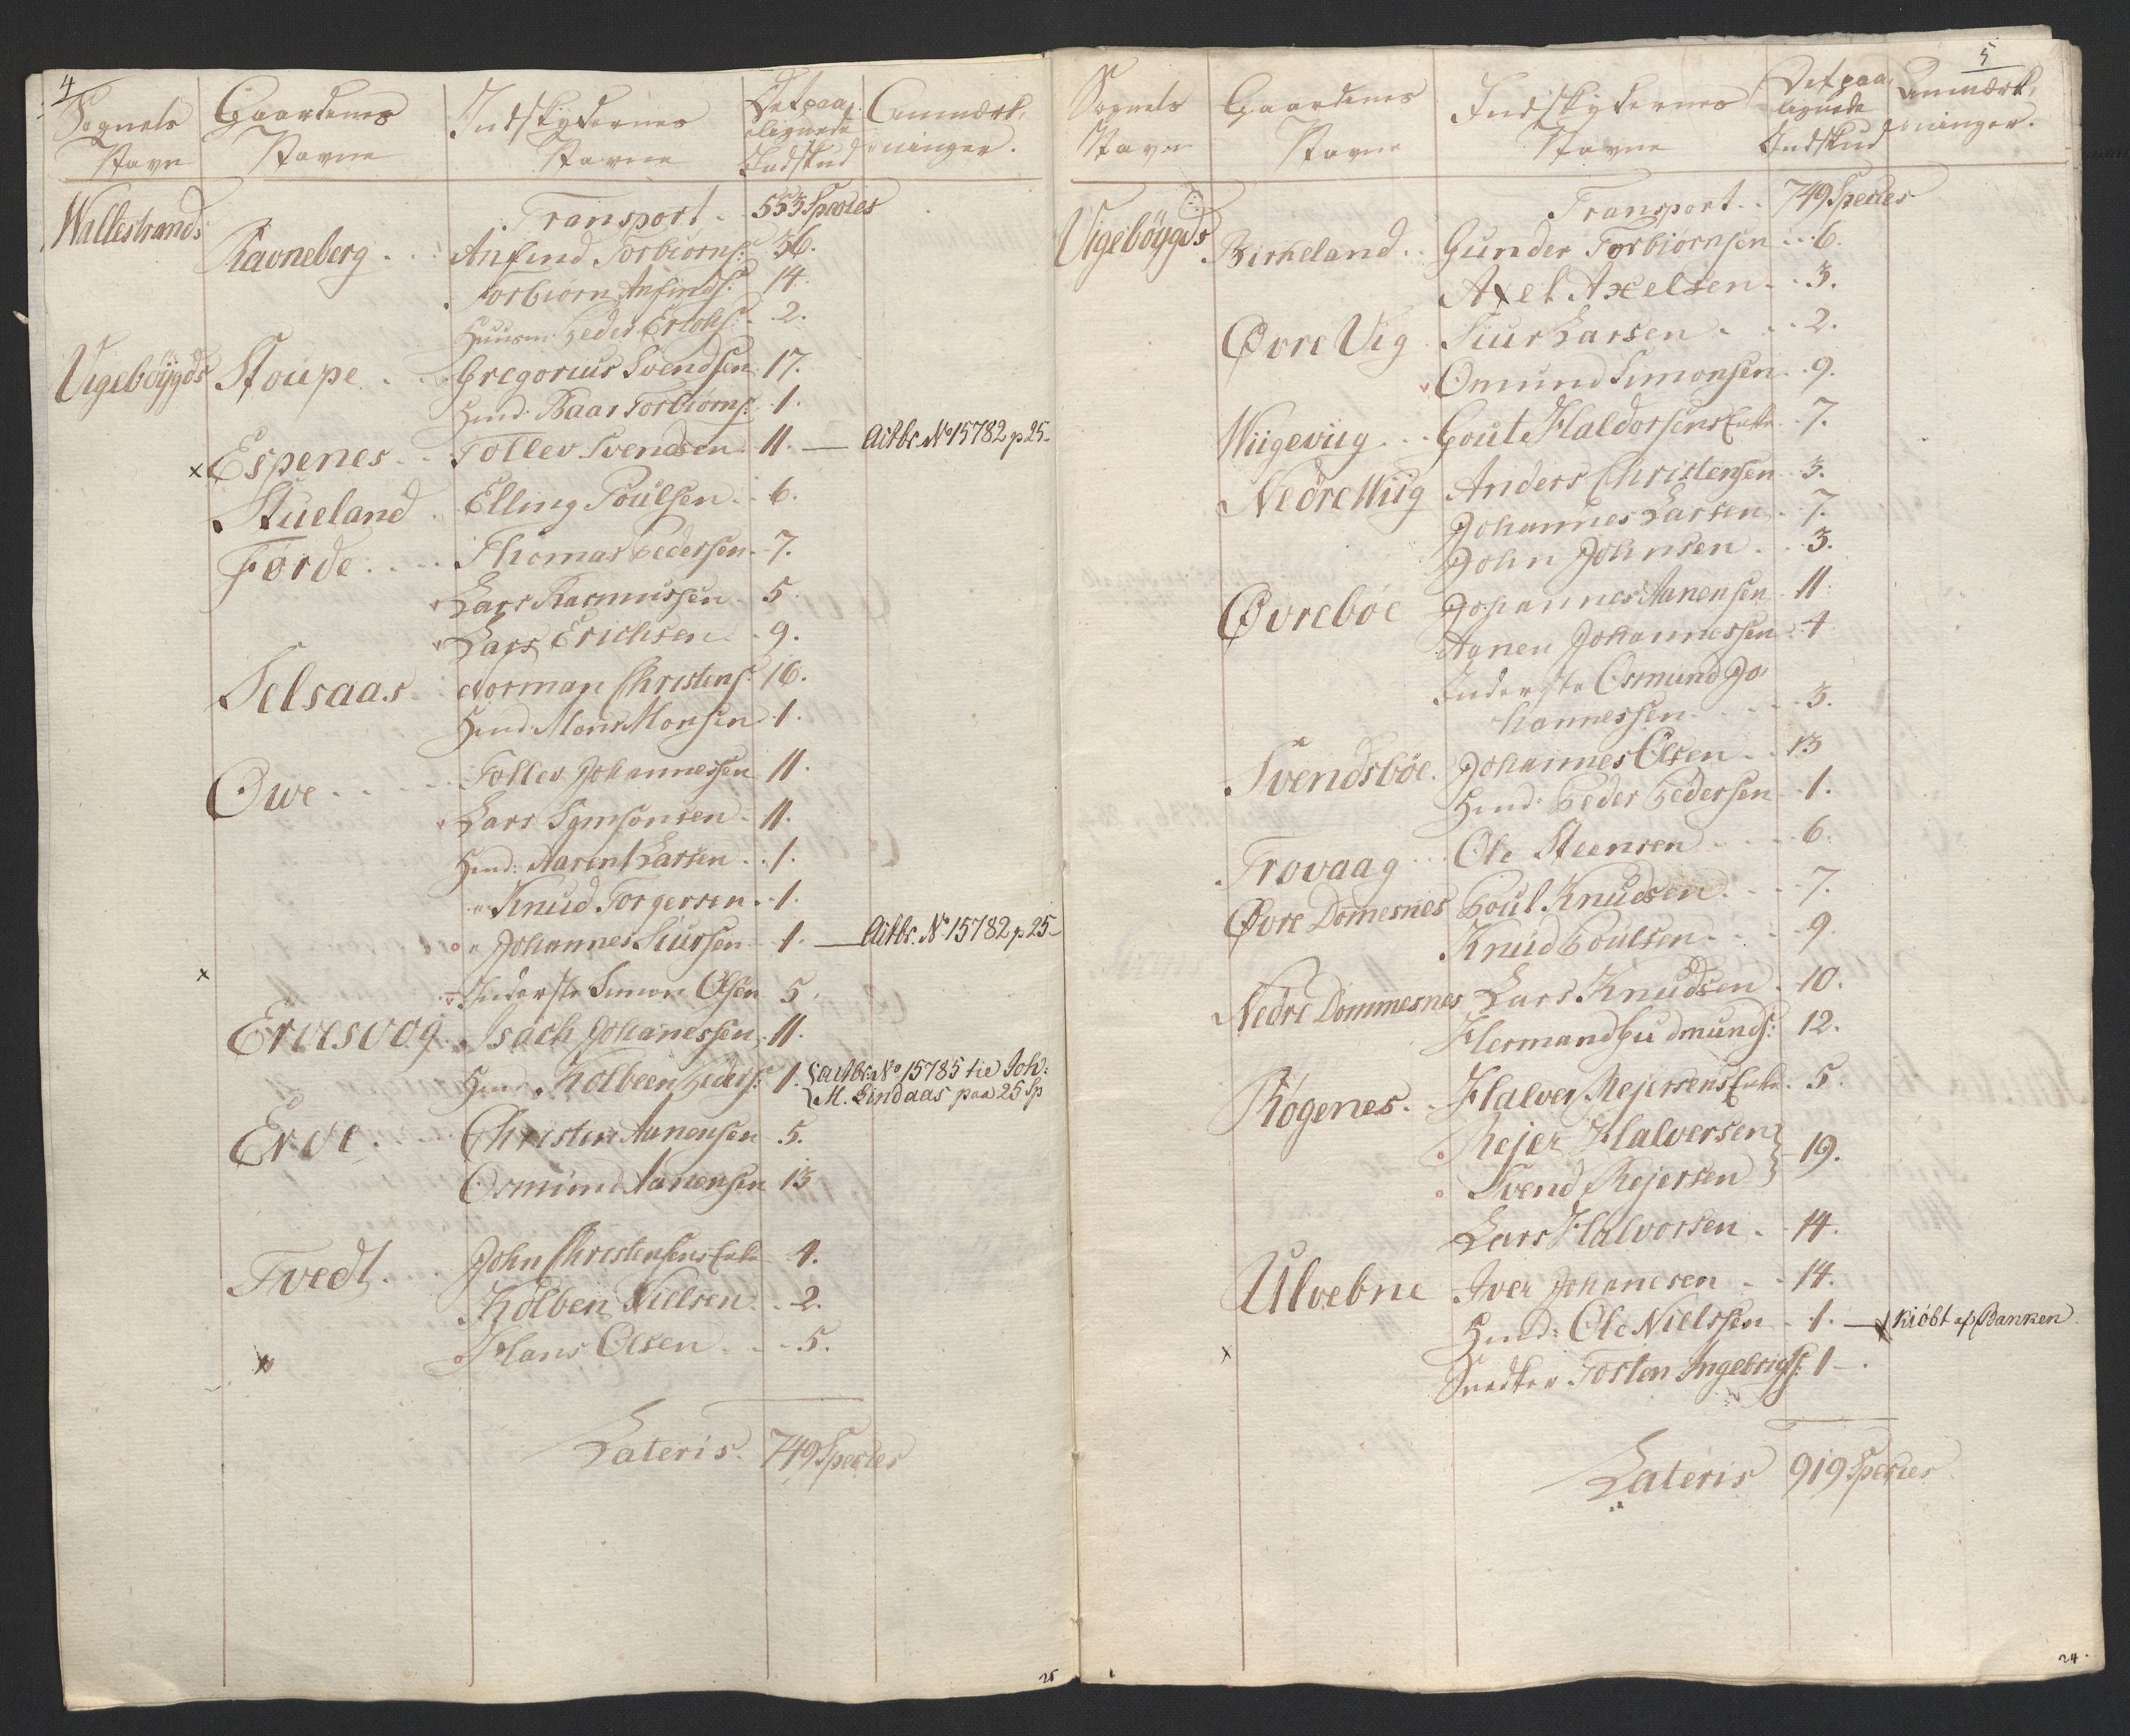 4
Sognets Gaardenes Indskydernes Det paa- Anmærk-
lignede
Navn Navne Navne Indskud ninger.
Transport. 553 Species
Wallestrands
Ravneberg . . Anfind Torbiørns: 36.
Torbiørn Anfinds: 14.
Huusm: Peder Erichs: 2.
Vigebøygds Stoupe . . Gregorius Svendsen 17.
Hmd: Baar Torbiørns: 1.
x Espenes . . Tollev Svendsen 11. — Actbr. No 15782 p 25-
Stueland . Elling Poulsen . 6.
Førde . . . . Thomas Pedersen . 7.
Lars Rasmussen . 5.
Lars Erichsen . 9.
Selsaas . Norman Christens: 16.
Hmd: Mons Monsen 1.
Owe . . . . . Tollev Johannessen 11.
Lars Symsonsen . 11.
Hmd: Aarent Larsen . . 1.
" Knud Torgersen . 1.
" Johannes Siursen . 1. — Actbr. No 15782 p 25-
x
Inderste Simon Olsen 5.
Ervesvog . Isach Johanessen 11.
Hmd: Kolbeen Peders: 1. { Actbr: No 15785 tie Joh:
M. Lindaas paa 25 Sp
Erve . Christen Aanensen 5.
Osmund Aanensen 13
Tvedt . . John Christensens Enke 4.
Kolben Nielsen . . 2.
x Hans Olsen . . . 5.
Lateris. 749 Species
25
5
Sognets Gaardenes Indskydernes Det paa- Anmærk-
lignede
Navn Navne Navne Indskud ninger.
Transport . . 749 Species
Vigebøygds Birkeland . . Gunder Torbiørnsen . . 6.
Axel Axelsen . . 3.
Øvre Vig Siur Larsen . . . 2.
Omund Simonsen . . 9.
Wiigeviig . . Gout Haldorsens Enke . 7.
Nedre Wiig Anders Christensen . 3.
Johannes Larsen . 7.
John Johnsen . . 3.
Øvrebøe Johannes Aanensen . 11.
Aanen Johannessen . 4
Inderste Osmund Jo-
hannessen . . . . . 3.
Svendsbøe . Johannes Olsen . . 13
Hmd: Peder Pedersen . 1.
Trovaag . . Ole Steensen . . . . 6.
Øvre Domesnes Poul Knudsen . . . 7.
Knud Poulsen . . . . 9.
Nedre Dommesnes Lars Knudsen . 10.
Hermand Gudmunds: 12.
Røgenes . . Halver Rejersens Enke . 5.
Rejer Halversen }
Svend Rejersen } 19.
Lars Halvorsen . . 14.
Ulvebne Iver Johanesen . . 14.
Hmd: Ole Nielssen . 1. — x kiöbt af Banken
x Snedker Tosten Ingebrigts: 1 - .
Lateris 919 Species
24.